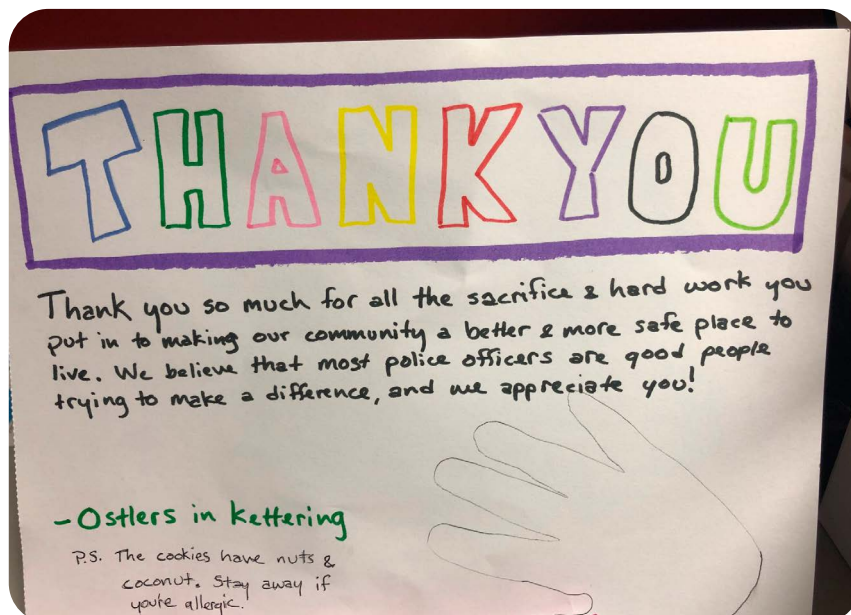 THANK YOU
Thank you so much for all the sacrifice & hard work you
put in to making our community a better & more safe place to
live. We believe that most police officers are good people
trying to make a difference, and we appreciate you!
- Ostlers in Kettering
P.S. The cookies have nuts &
coconut. Stay away if
you're allergic.